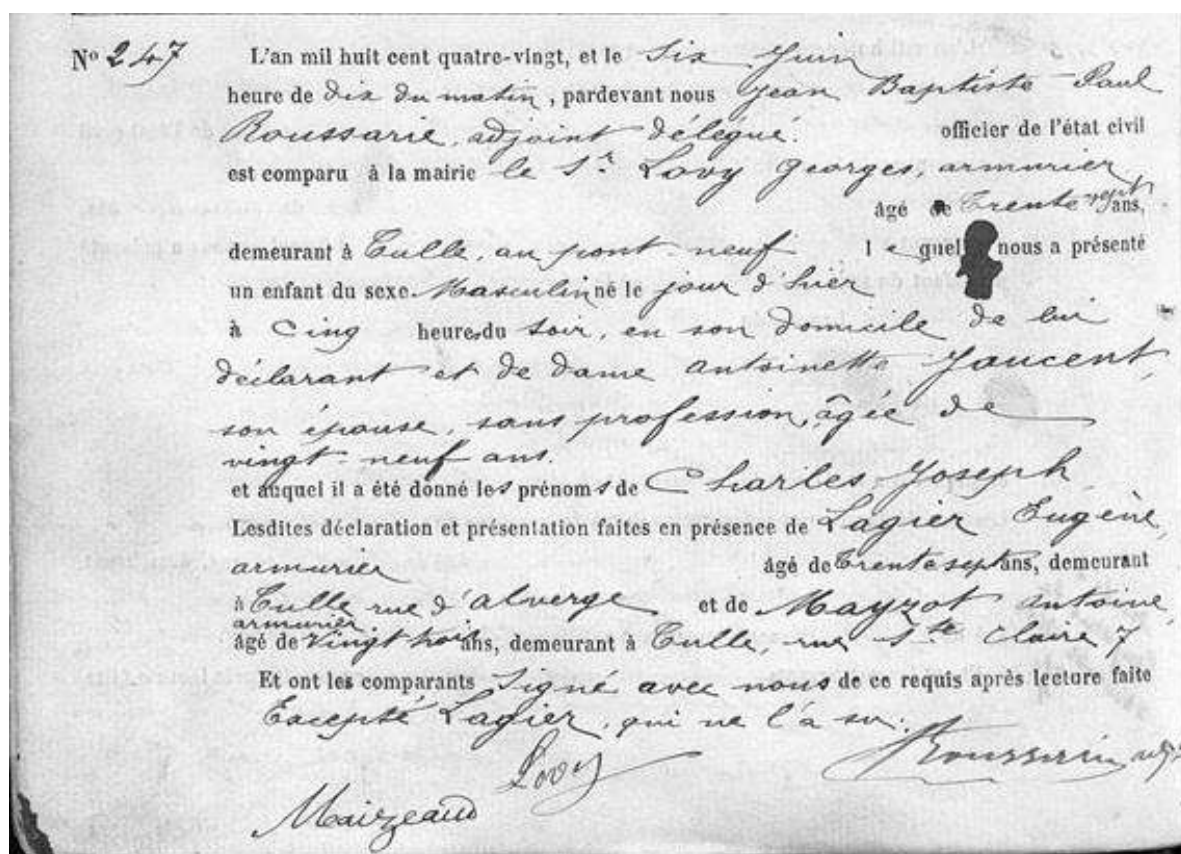 N° 247 L'an mil huit cent quatre-vingt, et le Six Juin
heure de dix du matin, pardevant nous Jean Baptiste Paul
Roussarie, adjoint délégué. officier de l'état civil
est comparu à la mairie le Sr. Lovy Georges, armurier
âgé de Trente sept ans,
demeurant à Tulle, au pont-neuf lequel nous a présenté
un enfant du sexe Masculin né le jour d'hier
à Cinq heures du soir, en son domicile de lui
déclarant et de dame Antoinette Jaucent,
son épouse, sans profession, âgée de
vingt-neuf ans.
et auquel il a été donné les prénoms de Charles Joseph
Lesdites déclaration et présentation faites en présence de Lagier Eugène,
armurier âgé de Trente sept ans, demeurant
à Tulle rue d'alverge et de Mayzot antoine,
armurier
âgé de Vingt trois ans, demeurant à Tulle, rue Ste Claire 7
Et ont les comparants Signé avec nous de ce requis après lecture faite
Excepté Lagier, qui ne l'a su.
Lovy Roussarie adj
Maizeaud